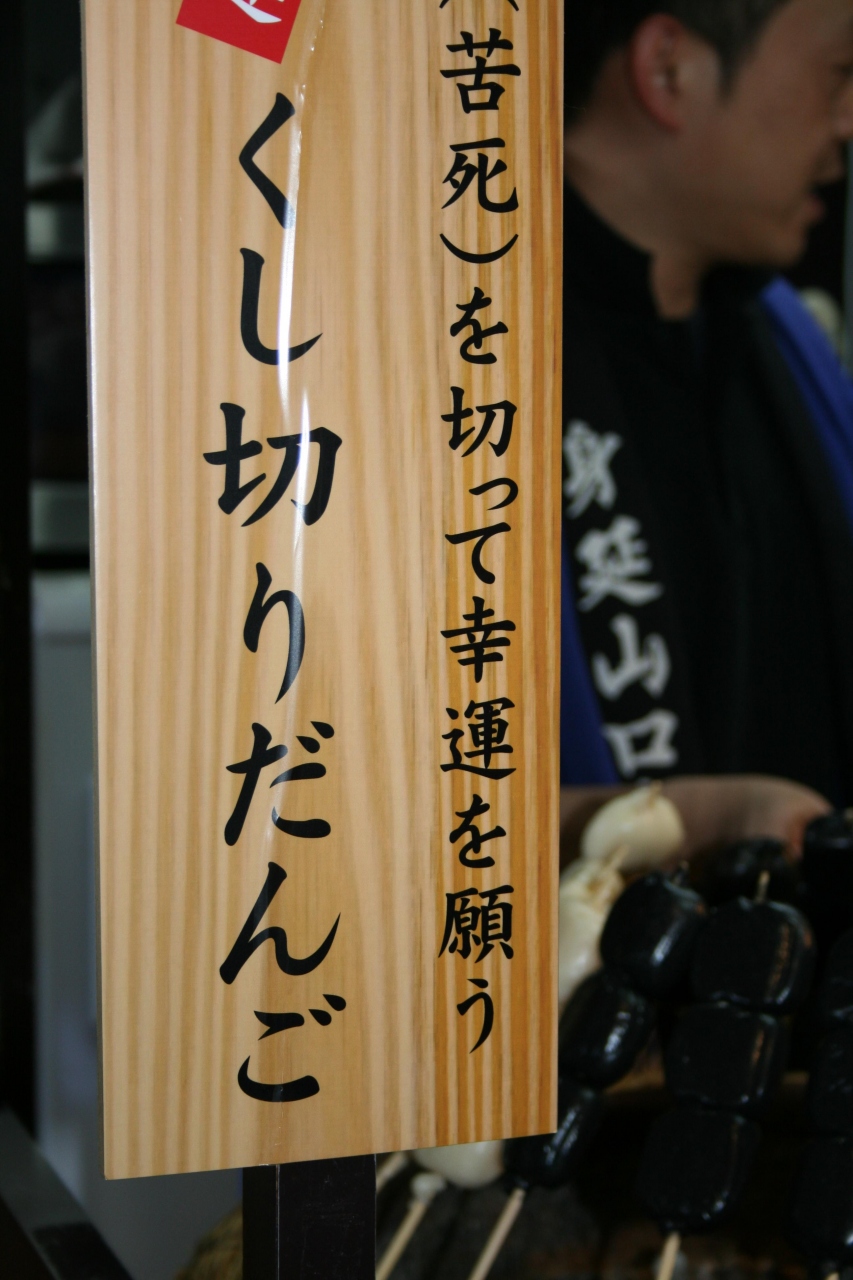 (苦死)を切って幸運を願う
くし切りだんご
身延山口